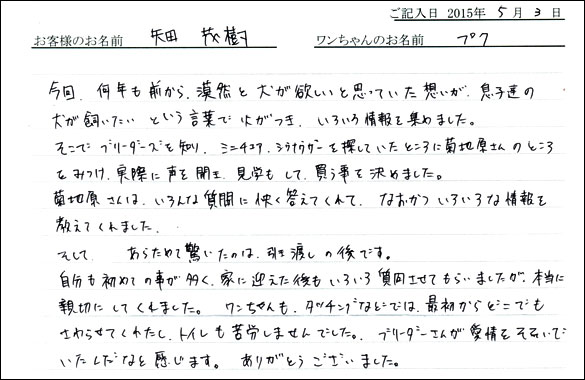 ご記入日 2015年 5月 3日
お客様のお名前 矢田 茂樹 ワンちゃんのお名前 プク
今回、何年も前から、漠然と犬が欲しいと思っていた想いが、息子達の
犬が飼いたい という言葉で火がつき、いろいろ情報を集めました。
そこで ブリーダーズを知り、ミニチュア、シュナウザーを探していたところに菊地原さんのところ
をみつけ、実際に声を聞き、見学もして、買う事を決めました。
菊地原さんは、いろんな質問に快く答えてくれて、なおかついろいろな情報を
教えてくれました。
そして あらためて驚いたのは、引き渡しの後です。
自分も初めての事が多く、家に迎えた後もいろいろ質問させてもらいましたが、本当に
親切にしてくれました。 ワンちゃんも、タッチングなどでは、最初からどこでも
さわらせてくれたし、トイレも苦労しませんでした。 ブリーダーさんが愛情をそそいで
いたんだなと感じます。 ありがとうございました。